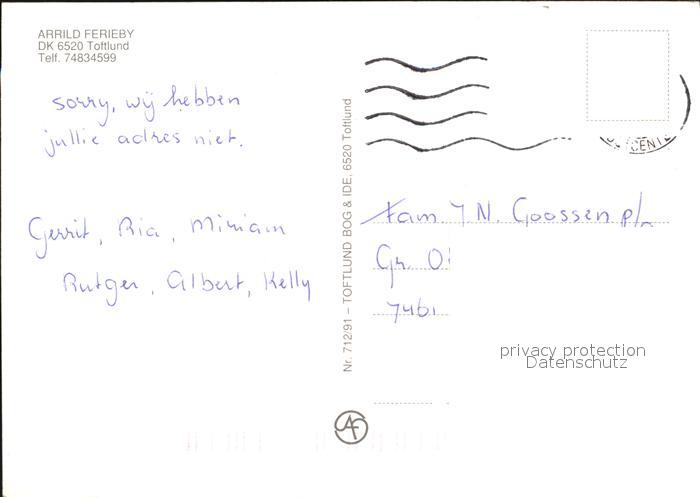 ARRILD FERIEBY
DK 6520 Toftlund
Telf. 74834599
sorry, wij hebben
jullie adres niet.
Gerrit, Ria, Miriam
Rutger, Albert, Kelly
Nr. 712/91 – TOFTLUND BOG & IDE, 6520 Toftlund
CENT
Fam J N. Goossen p/
Gr. O
privacy protection
Datenschutz